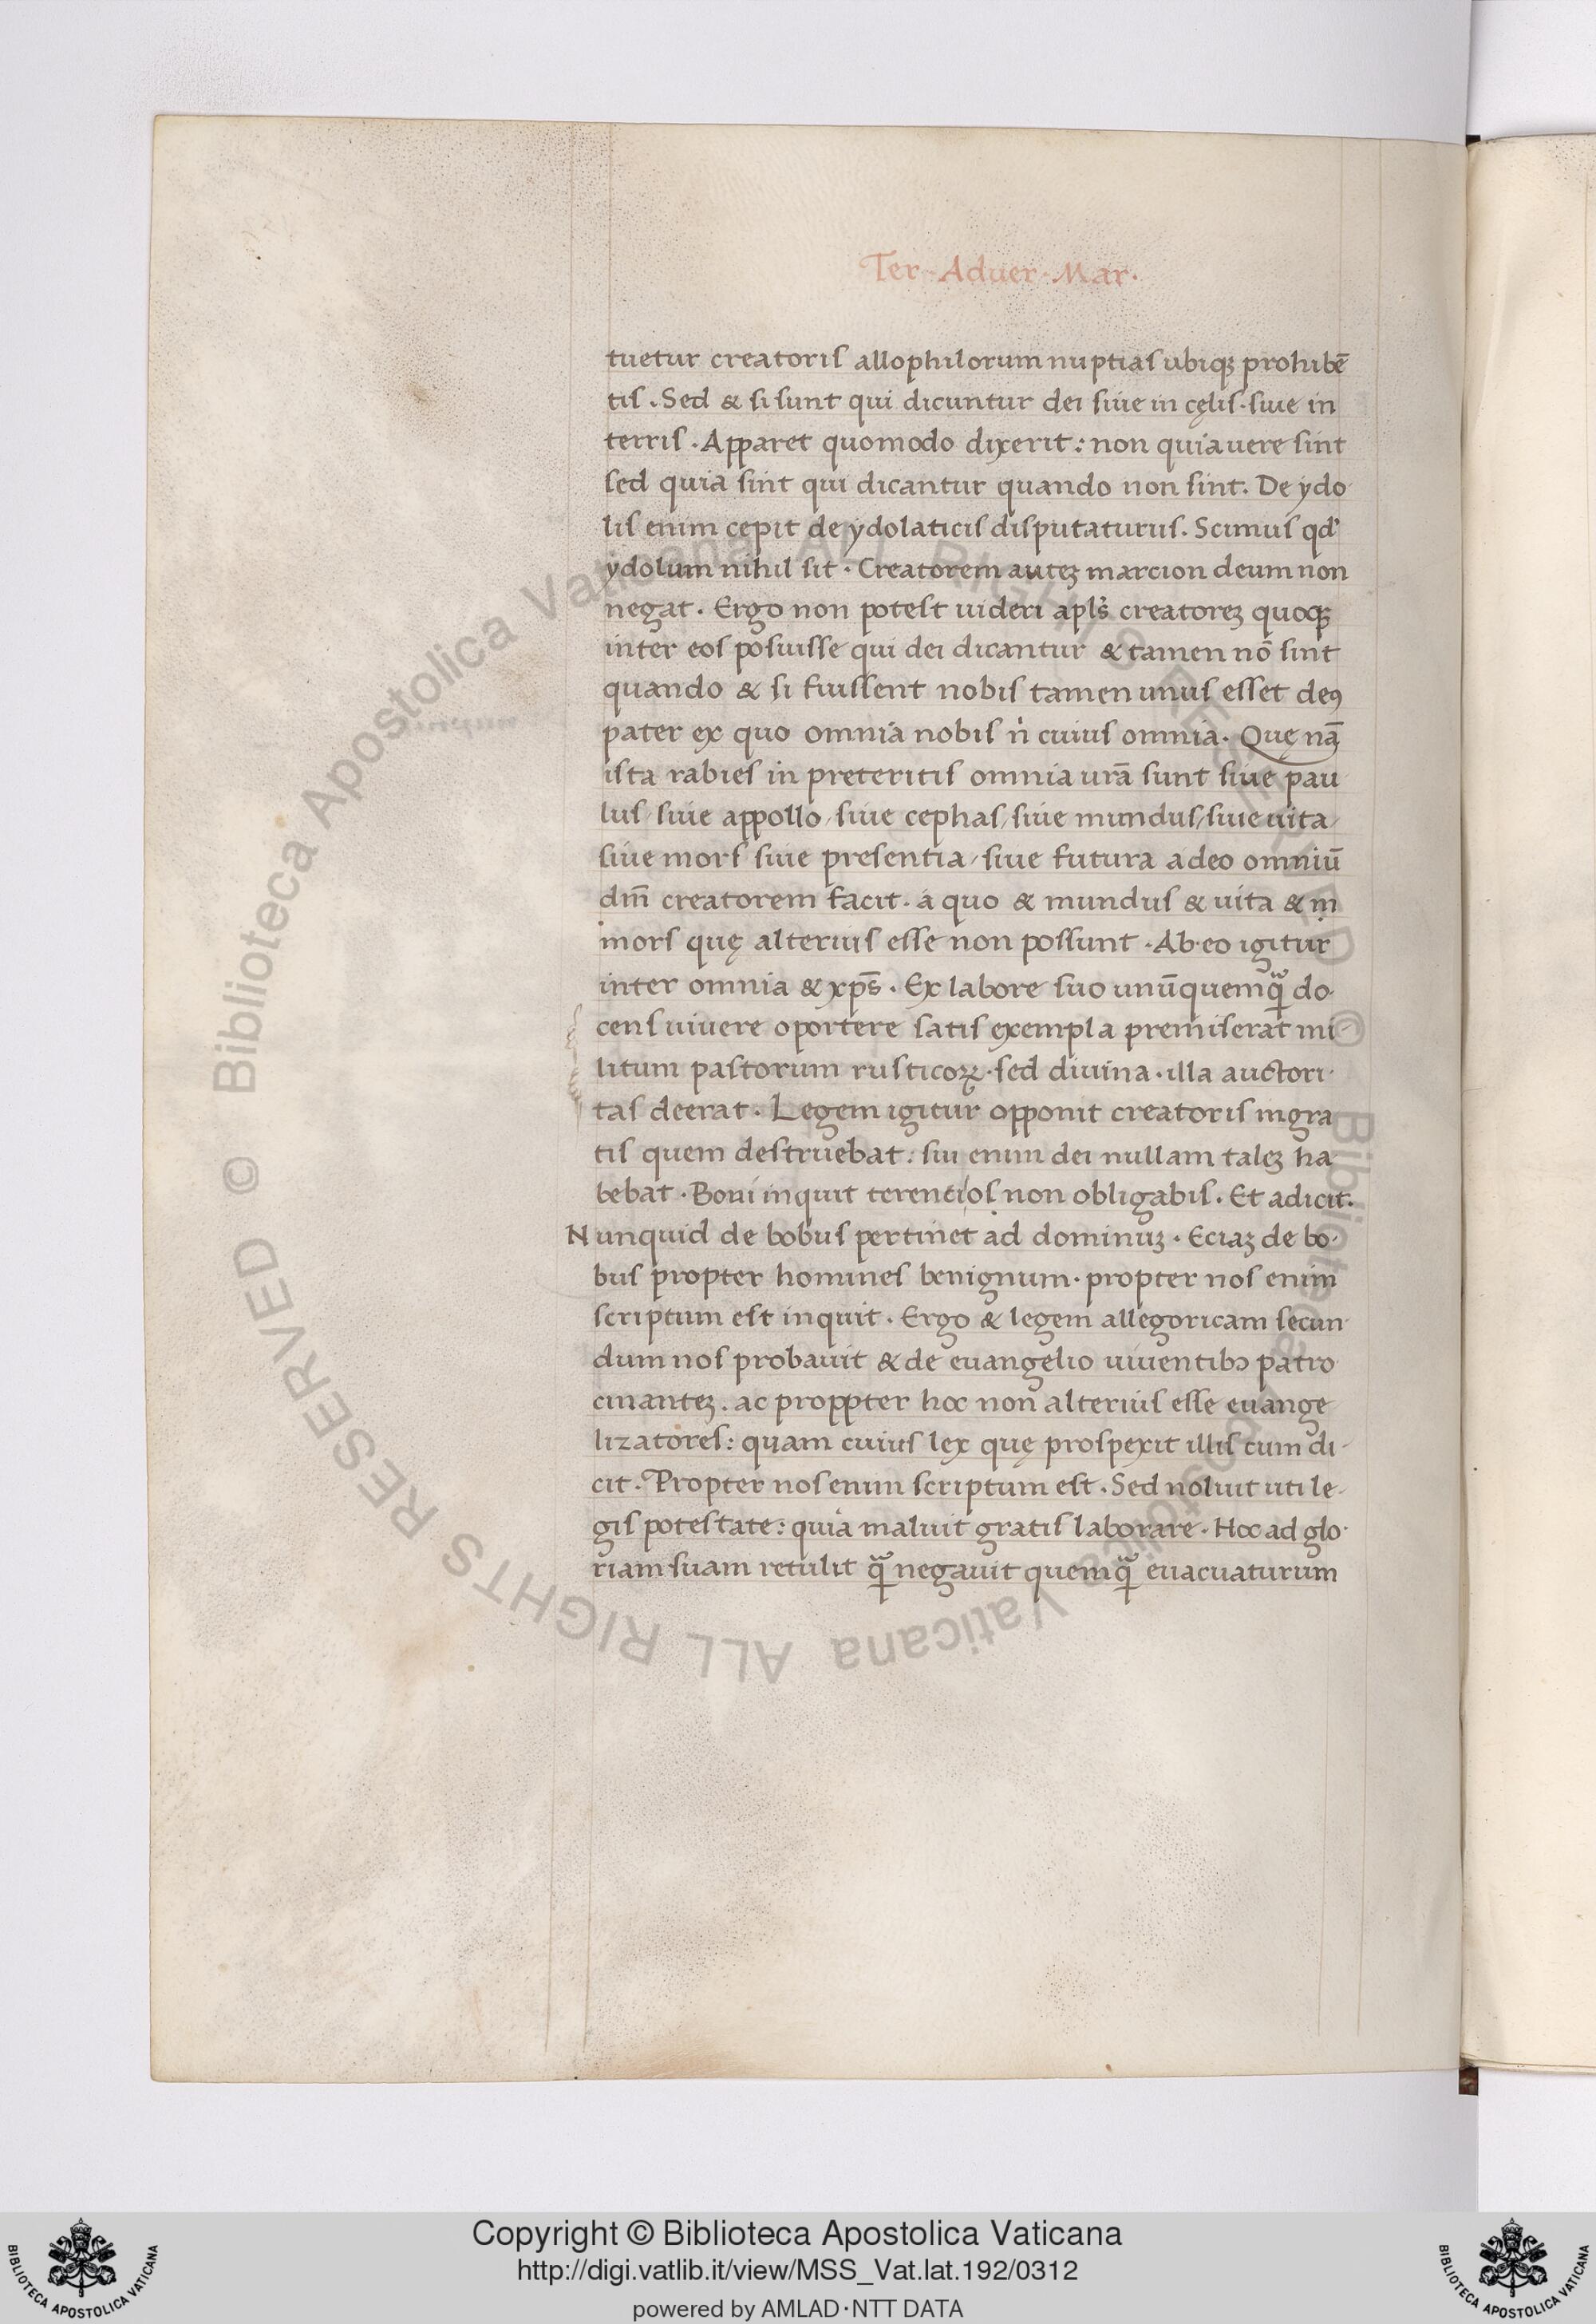 Ter · Aduer · Mar ·
tuetur creatoris allophilorum nuptias ubiqꝫ prohibē
tis . Sed & si sunt qui dicuntur dei siue in cęlis · siue in
terris . Apparet quomodo dixerit : non quia uere sint
sed quia sint qui dicantur quando non sint . De ydo
lis enim cepit de ydolaticis disputaturus . Scimus qd'
ydolum nihil sit . Creatorem auteꝫ marcion deum non
negat . Ergo non potest uideri apls' creatoreꝫ quoqꝫ
inter eos posuisse qui dei dicantur & tamen nō sint
quando & si fuissent nobis tamen unus esset deꝰ
pater ex quo omnia nobis n' cuius omnia . Quę nā
ista rabies in preteritis omnia urā sunt siue pau
lus / siue appollo / siue cephas / siue mundus / siue uita /
siue mors siue presentia / siue futura adeo omniū
dm̄ creatorem facit . a quo & mundus & uita & m
mors quę alterius esse non possunt . Ab eo igitur
inter omnia & xp̄s . Ex labore suo unūquemqꝫ do
cens uiuere oportere satis exempla premiserat mi
litum pastorum rusticoꝝ . sed diuina . illa auctori
tas deerat . Legem igitur opponit creatoris ingra
tis quem destruebat : sui enim dei nullam taleꝫ ha
bebat . Boui inquit terencios non obligabis . Et adicit .
Nunquid de bobus pertinet ad dominuꝫ . Eciaꝫ de bo
bus propter homines benignum . propter nos enim
scriptum est inquit . Ergo & legem allegoricam secun
dum nos probauit & de euangelio uiuentibꝰ patro
cinanteꝫ . ac proppter hoc non alterius esse euange
lizatores : quam cuius lex quę prospexit illis cum di
cit . Propter nos enim scriptum est . Sed noluit uti le
gis potestate : quia maluit gratis laborare . Hoc ad glo
riam suam retulit qᷓ negauit quemqᷓ euacuaturum
© Biblioteca Apostolica Vaticana ALL RIGHTS RESERVED © Biblioteca Apostolica Vaticana ALL RIGHTS RESERVED
Copyright © Biblioteca Apostolica Vaticana
http://digi.vatlib.it/view/MSS_Vat.lat.192/0312
powered by AMLAD·NTT DATA
BIBLIOTECA APOSTOLICA VATICANA
BIBLIOTECA APOSTOLICA VATICANA